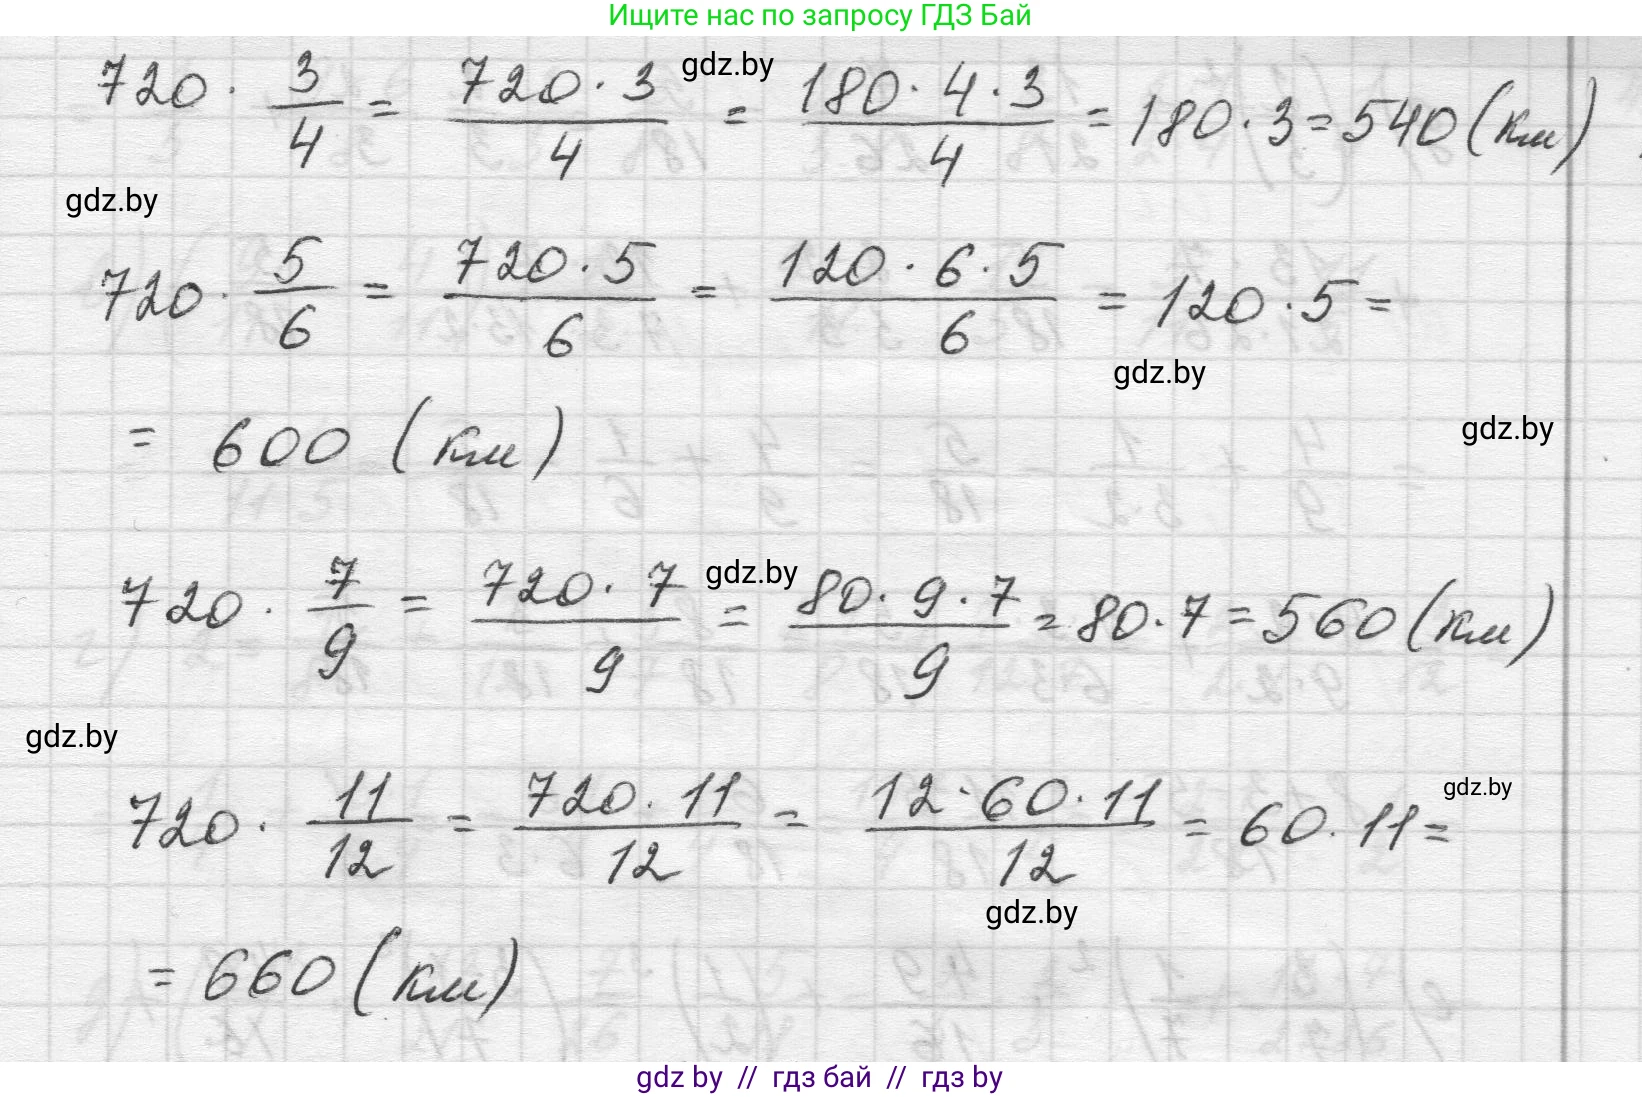 Ищите нас по запросу ГДЗ Бай
720 · 3/4 = 720 · 3/4 = 180 · 4 · 3/4 = 180 · 3 = 540 (км)
gdz.by
gdz.by
720 · 5/6 = 720 · 5/6 = 120 · 6 · 5/6 = 120 · 5 =
gdz.by
= 600 (км)
gdz.by
720 · 7/9 = 720 · 7/9 = 80 · 9 · 7/9 = 80 · 7 = 560 (км)
gdz.by
gdz.by
720 · 11/12 = 720 · 11/12 = 12 · 60 · 11/12 = 60 · 11 =
gdz.by
gdz.by
= 660 (км)
gdz by // гдз бай // гдз by